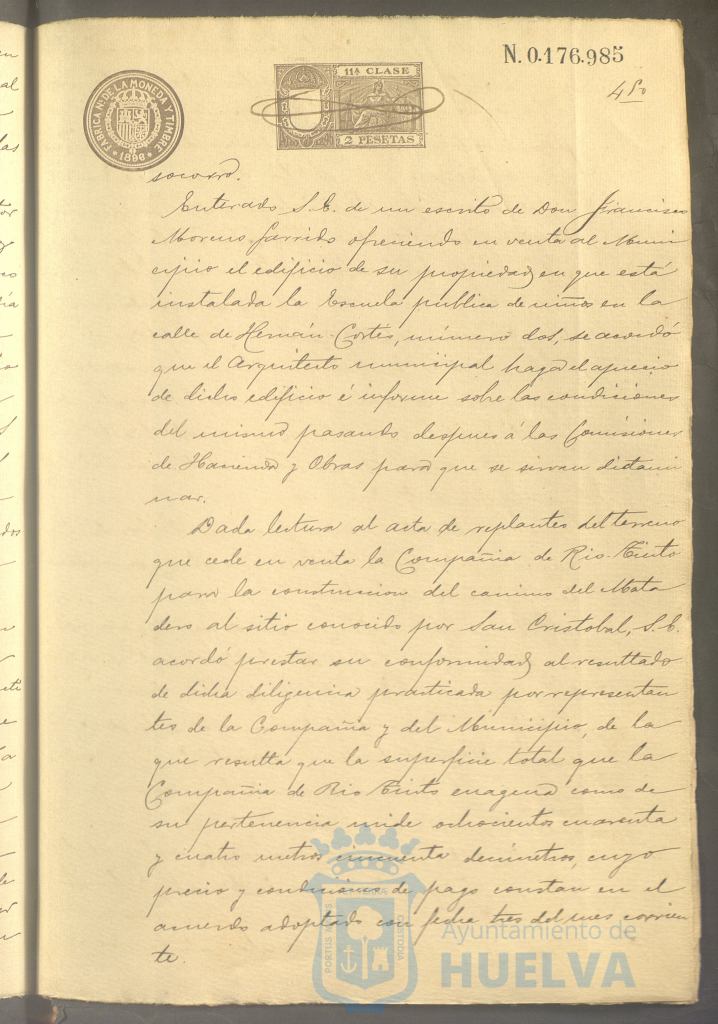 N. 0.176.985
11ª CLASE
2 PESETAS
FABRICA Nl. DE LA MONEDA Y TIMBRE
1896
socorro.
Enterado S. E. de un escrito de Don Francisco
Moreno Garrido ofreciendo en venta al Muni
cipio el edificio de su propiedad en que está
instalada la Escuela publica de niños en la
calle de Hernán-Cortés, número dos, se acordó
que el Arquitecto municipal haga el aprecio
de dicho edificio é informe sobre las condiciones
del mismo pasando despues á las Comisiones
de Hacienda y Obras para que se sirvan dictami
nar.
Dada lectura al acta de replanteo del terreno
que cede en venta la Compañia de Rio-Tinto
para la construccion del camino del Mata
dero al sitio conocido por San Cristobal, S. E.
acordó prestar su conformidad al resultado
de dicha diligencia practicada por representan
tes de la Compañia y del Municipio, de la
que resulta que la superficie total que la
Compañia de Rio Tinto enagena como de
su pertenencia mide ochocientos cuarenta
y cuatro metros cincuenta decimetros, cuyo
precio y condiciones de pago constan en el
acuerdo adoptado con fecha tres del mes corrien
te.
PORTUS MARIS
CUSTODIA
Ayuntamiento de
HUELVA